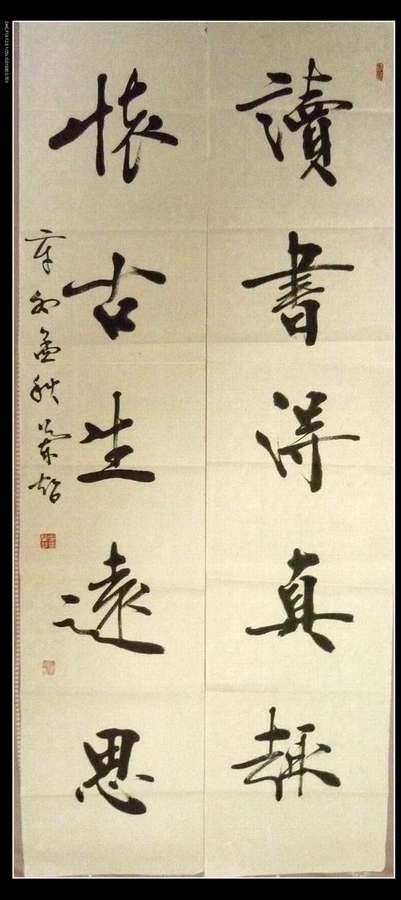 讀書得真趣
懷古生遠思
辛卯孟秋